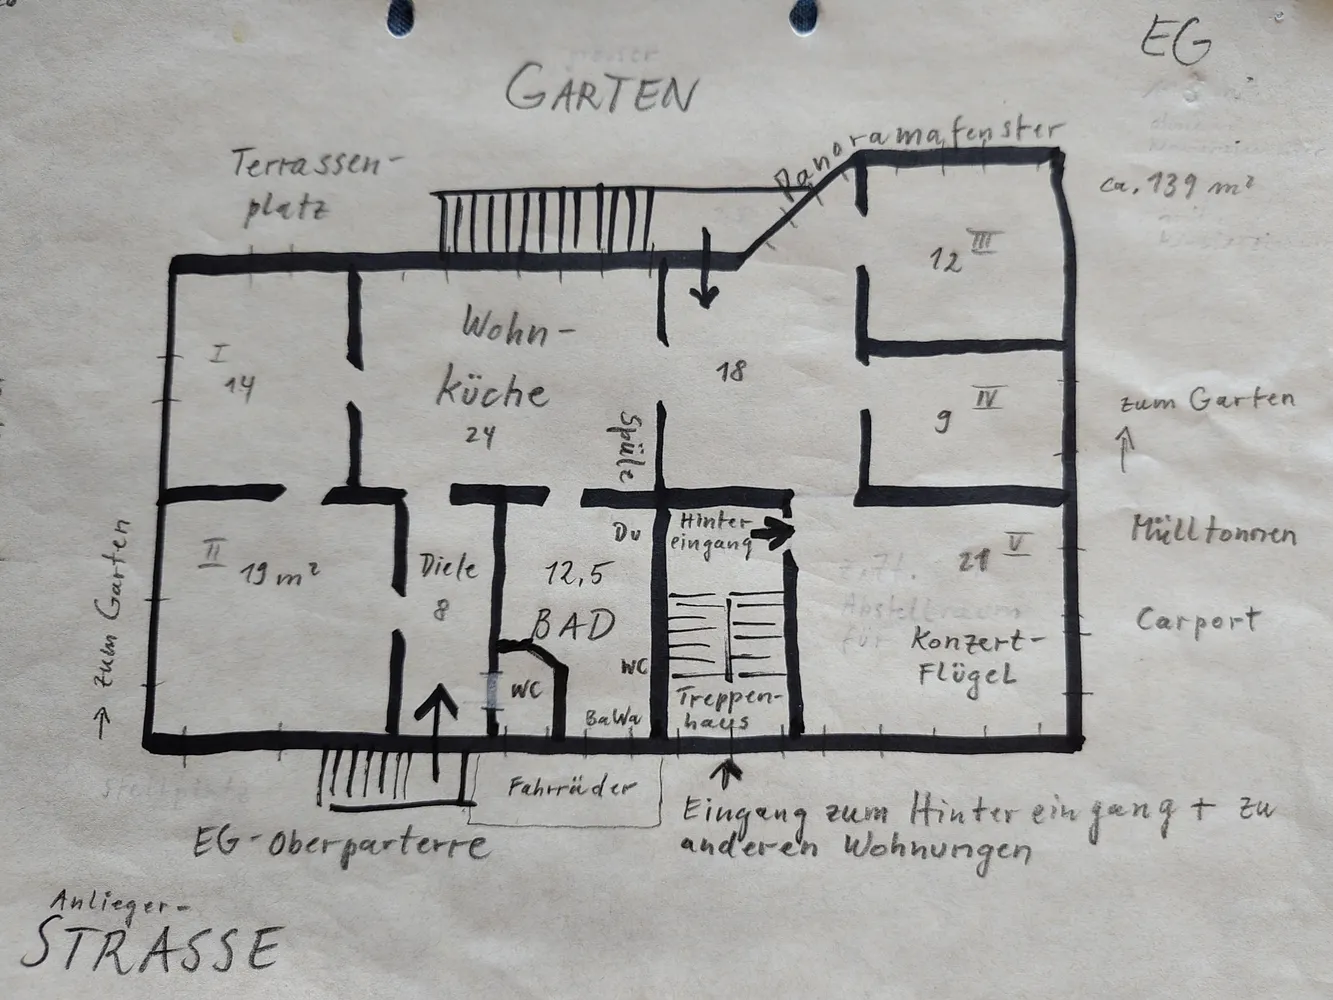 EG
GARTEN
Panoramafenster
Terrassen-
platz
ca. 139 m²
III
12
Wohn-
küche
24
I
14
18
IV
9
zum Garten
↑
Spüle
Hinter
eingang
Du
II
19 m²
Diele
8
12,5
BAD
V
21
Mülltonnen
Carport
Konzert-
Flügel
→ zum Garten
WC
WC
BaWa
Treppen-
haus
Fahrräder
EG-Oberparterre
Eingang zum Hintereingang + zu
anderen Wohnungen
Anlieger-
STRASSE